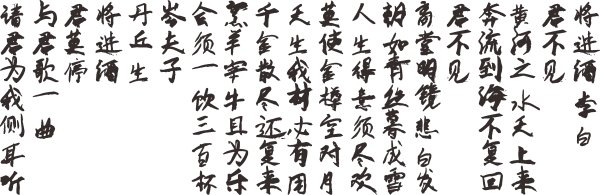 将进酒 李白
君不见
黄河之水天上来
奔流到海不复回
君不见
高堂明镜悲白发
朝如青丝暮成雪
人生得意须尽欢
莫使金樽空对月
天生我材必有用
千金散尽还复来
烹羊宰牛且为乐
会须一饮三百杯
岑夫子
丹丘生
将进酒
君莫停
与君歌一曲
请君为我侧耳听